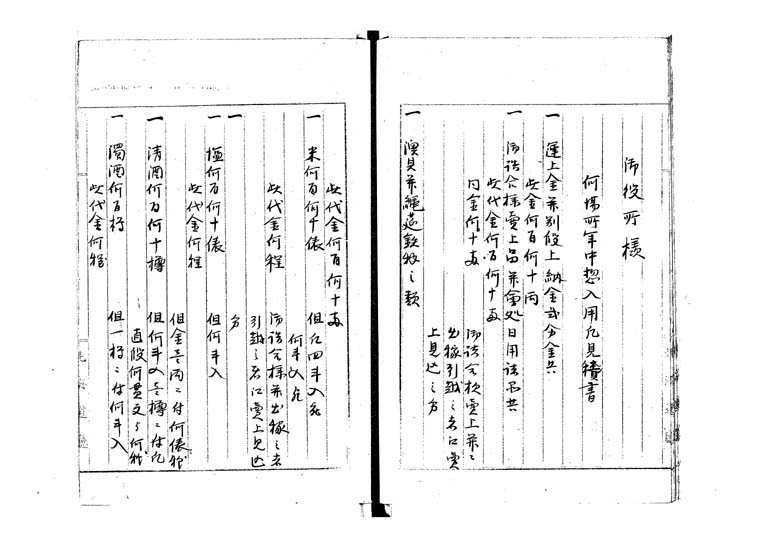 御役所様
何場所年中惣入用凡見積書
一 運上金并別段上納金弐分金共
此金何百何十両
一 御詰合様売上品并会処日用諸品共
此代金何百何十両
内金何十両 御詰合様売上并ニ
出稼引越之者江売
上見込之分
一 漁具并縄莚敷物之類
此代金何百何十両
一 米何百何千俵 但凡四斗入
何斗入
此代金何程 御詰合様并出稼之者
引越之者江売上見込
分
一
一 塩何百何十俵 但何斗入
此代金何程 但金壱両ニ付何俵
一 清酒何百何十樽 但何斗入壱樽ニ付凡
直段何貫文
一 濁酒何百樽 但一樽ニ付何斗入
此代金何程